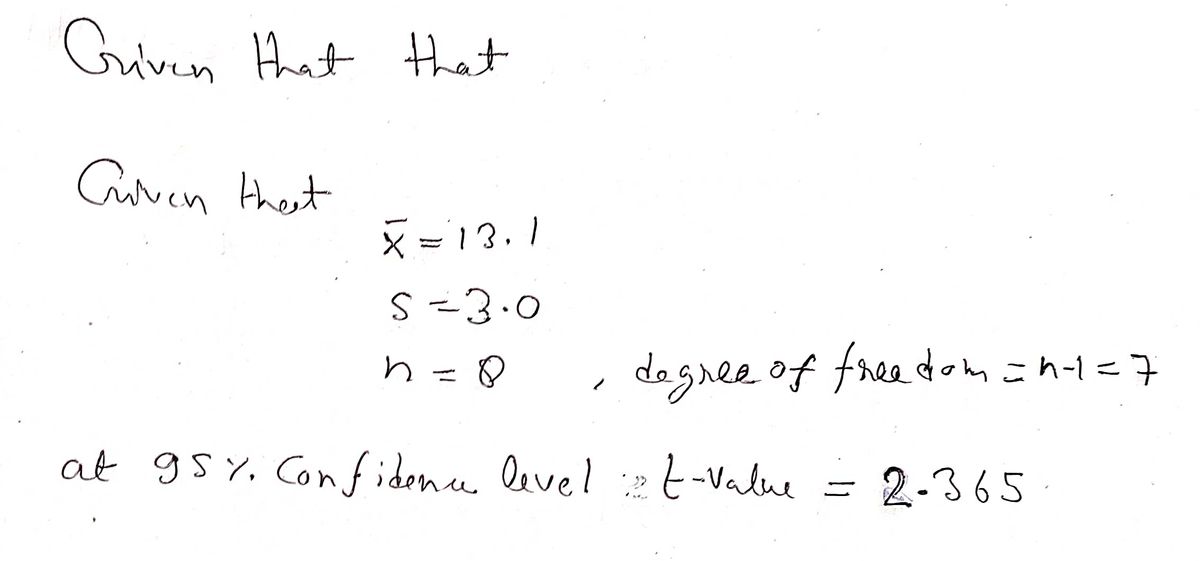 Given that that
Given that
x̄ = 13.1
s = 3.0
n = 8 , degree of freedom = n-1 = 7
at 95%. Confidence level t-value = 2.365